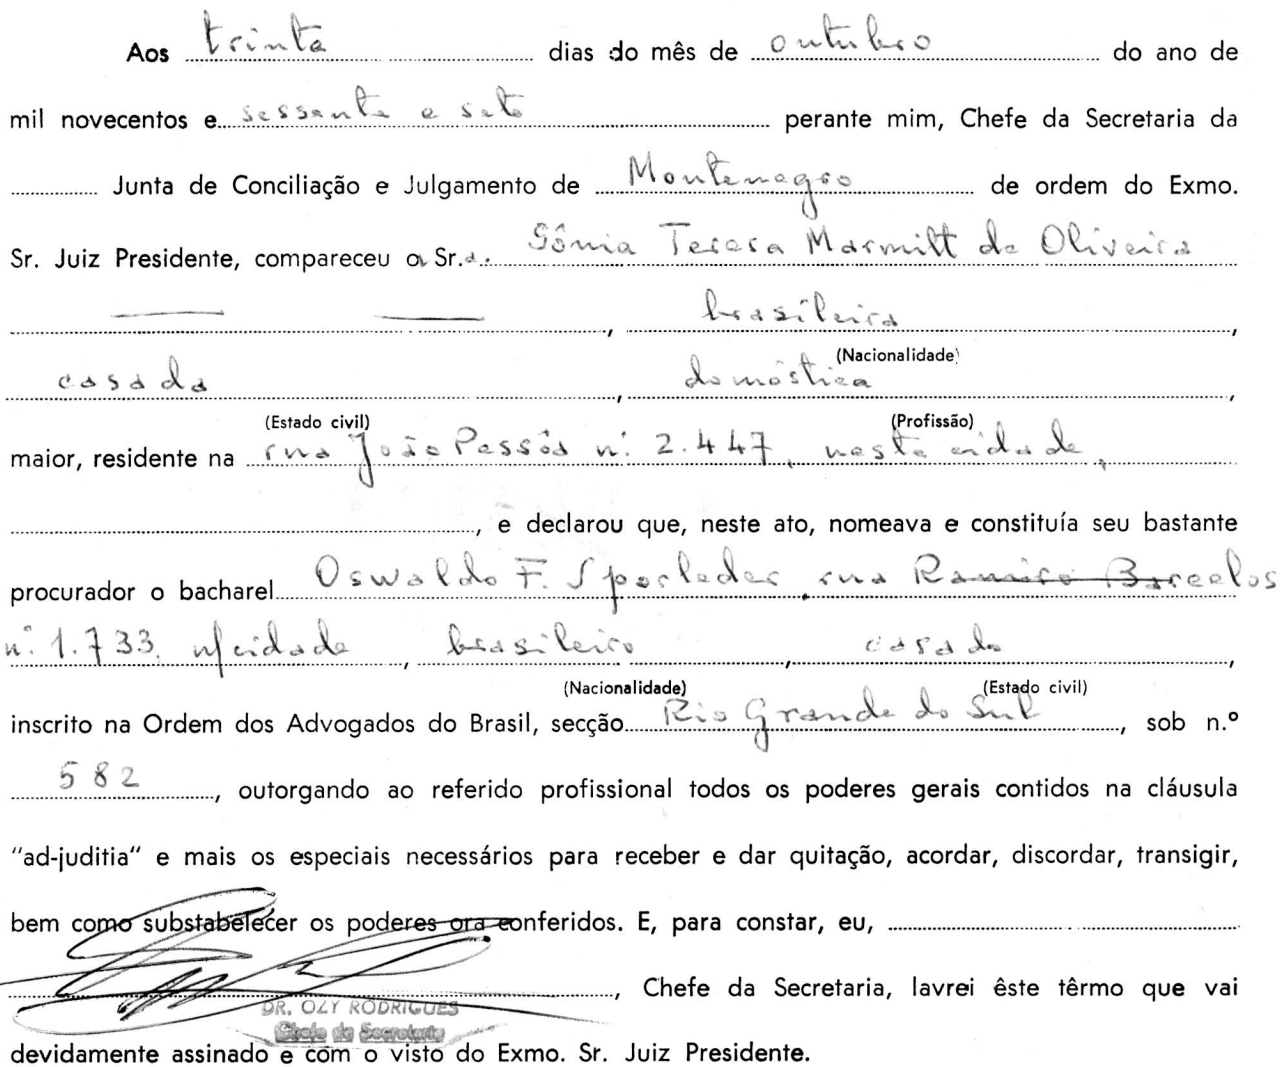 Aos trinta dias do mês de outubro do ano de
mil novecentos e sessenta e sete perante mim, Chefe da Secretaria da
Junta de Conciliação e Julgamento de Montenegro de ordem do Exmo.
Sr. Juiz Presidente, compareceu a Sr.a. Sônia Teresa Marmitt de Oliveira
brasileira,
(Nacionalidade)
casada, doméstica,
(Estado civil) (Profissão)
maior, residente na rua João Pessôa n.º 2.447, nesta cidade,
, e declarou que, neste ato, nomeava e constituía seu bastante
procurador o bacharel Oswaldo F. Sporleder, rua Ramiro Barcelos
n.º 1.733, n/cidade, brasileiro, casado,
(Nacionalidade) (Estado civil)
inscrito na Ordem dos Advogados do Brasil, secção Rio Grande do Sul, sob n.º
582, outorgando ao referido profissional todos os poderes gerais contidos na cláusula
"ad-juditia" e mais os especiais necessários para receber e dar quitação, acordar, discordar, transigir,
bem como substabelecer os poderes ora conferidos. E, para constar, eu,
, Chefe da Secretaria, lavrei êste têrmo que vai
DR. OZY RODRIGUES
Chefe da Secretaria
devidamente assinado e com o visto do Exmo. Sr. Juiz Presidente.